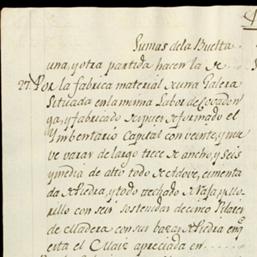 Sumas de la Buelta
una, y otra partida hacen la
27. Por la fabrica material de una Galera
Situada en la misma Labor de Cocadon
ga, y fabricado despues de formado el
Imbentario Capital con veinte, y nue
ve varas de largo trece de ancho, y seis
y media de alto todo de Adove, cimenta
da de Piedra, y todo techado de
rillo con seis sostenidas de cinco Pilares
de Madera con sus bazas de Piedra
esta el Claje apreciada en